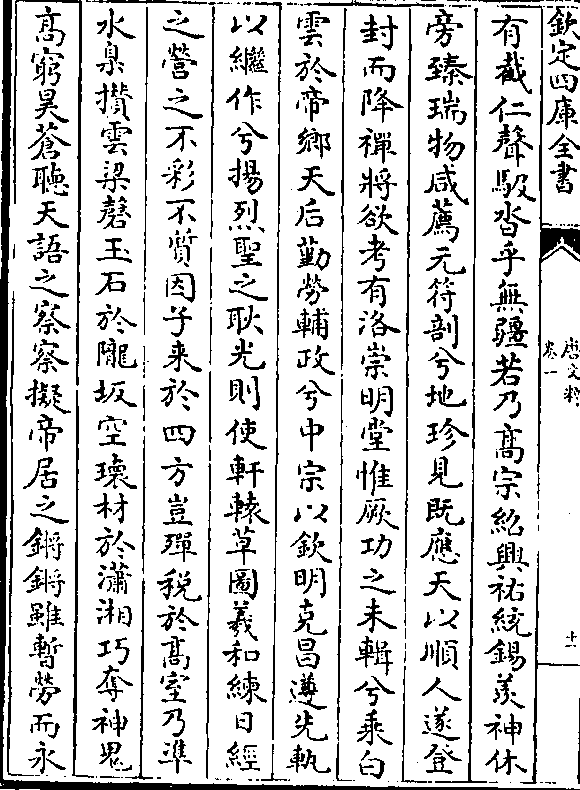 欽定四庫全書
唐文粹
卷一
十一
有截仁聲馺沓乎無疆若乃髙宗紹興祐統錫羨神休
旁臻瑞物咸薦元符剖兮地珍見既應天以順人遂登
封而降禪將欲考有洛崇明堂惟厥功之未輯兮乘白
雲於帝鄉天后勤勞輔政兮中宗以欽明克昌遵先軌
以繼作兮揚烈聖之耿光則使軒轅草圖羲和練日經
之營之不彩不質因子来於四方豈殫税於髙室乃凖
水臬攢雲梁磬玉石於隴坂空瓌材於瀟湘巧奪神鬼
髙窮昊蒼聴天語之察察擬帝居之鏘鏘雖暫勞而永